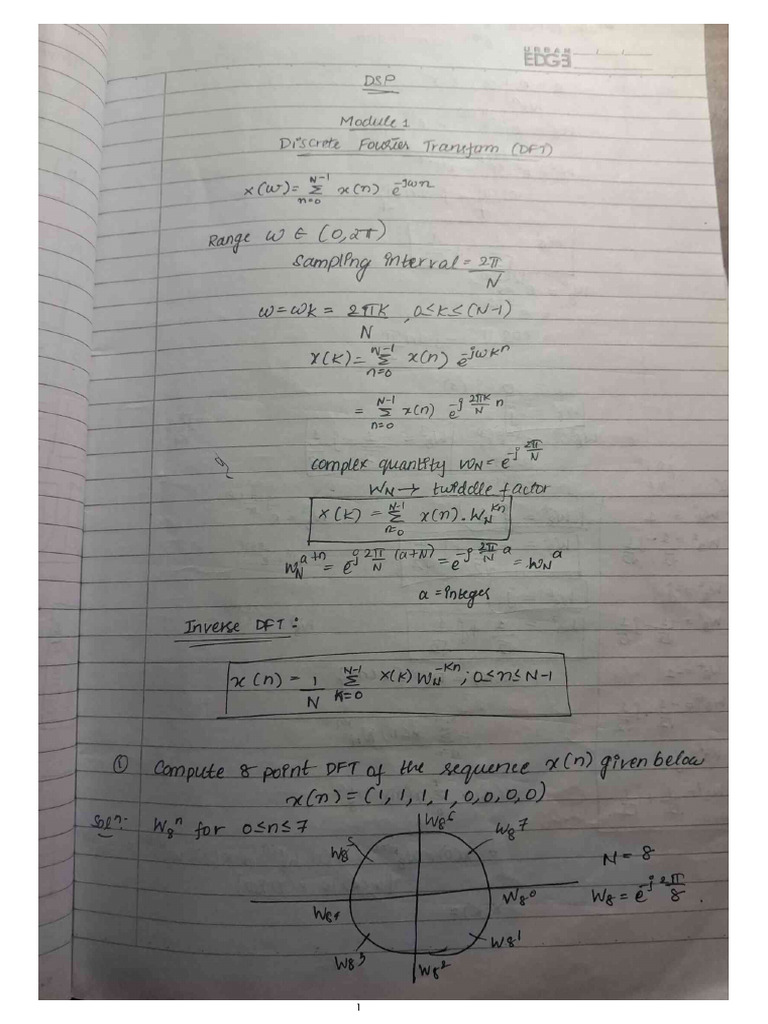 URBAN
EDGE
DSP
Module 1
Discrete Fourier Transform (DFT)
x(w) = N-1 Σ n=0 x(n) e^-jwn
Range w ∈ (0,2π)
Sampling interval = 2π/N
w = wk = 2πk/N , 0≤k≤(N-1)
X(k) = N-1 Σ n=0 x(n) e^-jwkn
= N-1 Σ n=0 x(n) e^-j 2πk/N n
complex quantity wN = e^-j 2π/N
WN → twiddle factor
X(k) = N-1 Σ n=0 x(n). WN^kn
WN^a+n = e^j 2π/N (a+N) = e^-j 2π/N a = WN^a
a = integer
Inverse DFT:
x(n) = 1/N N-1 Σ k=0 X(k) WN^-kn ; 0≤n≤N-1
① Compute 8 point DFT of the sequence x(n) given below
x(n) = (1, 1, 1, 1, 0, 0, 0, 0)
Soln: W8^n for 0≤n≤7
W8^6
W8^7
W8^5
N = 8
W8^4
W8^0
W8 = e^-j 2π/8 .
W8^3
W8^2
W8^1
1